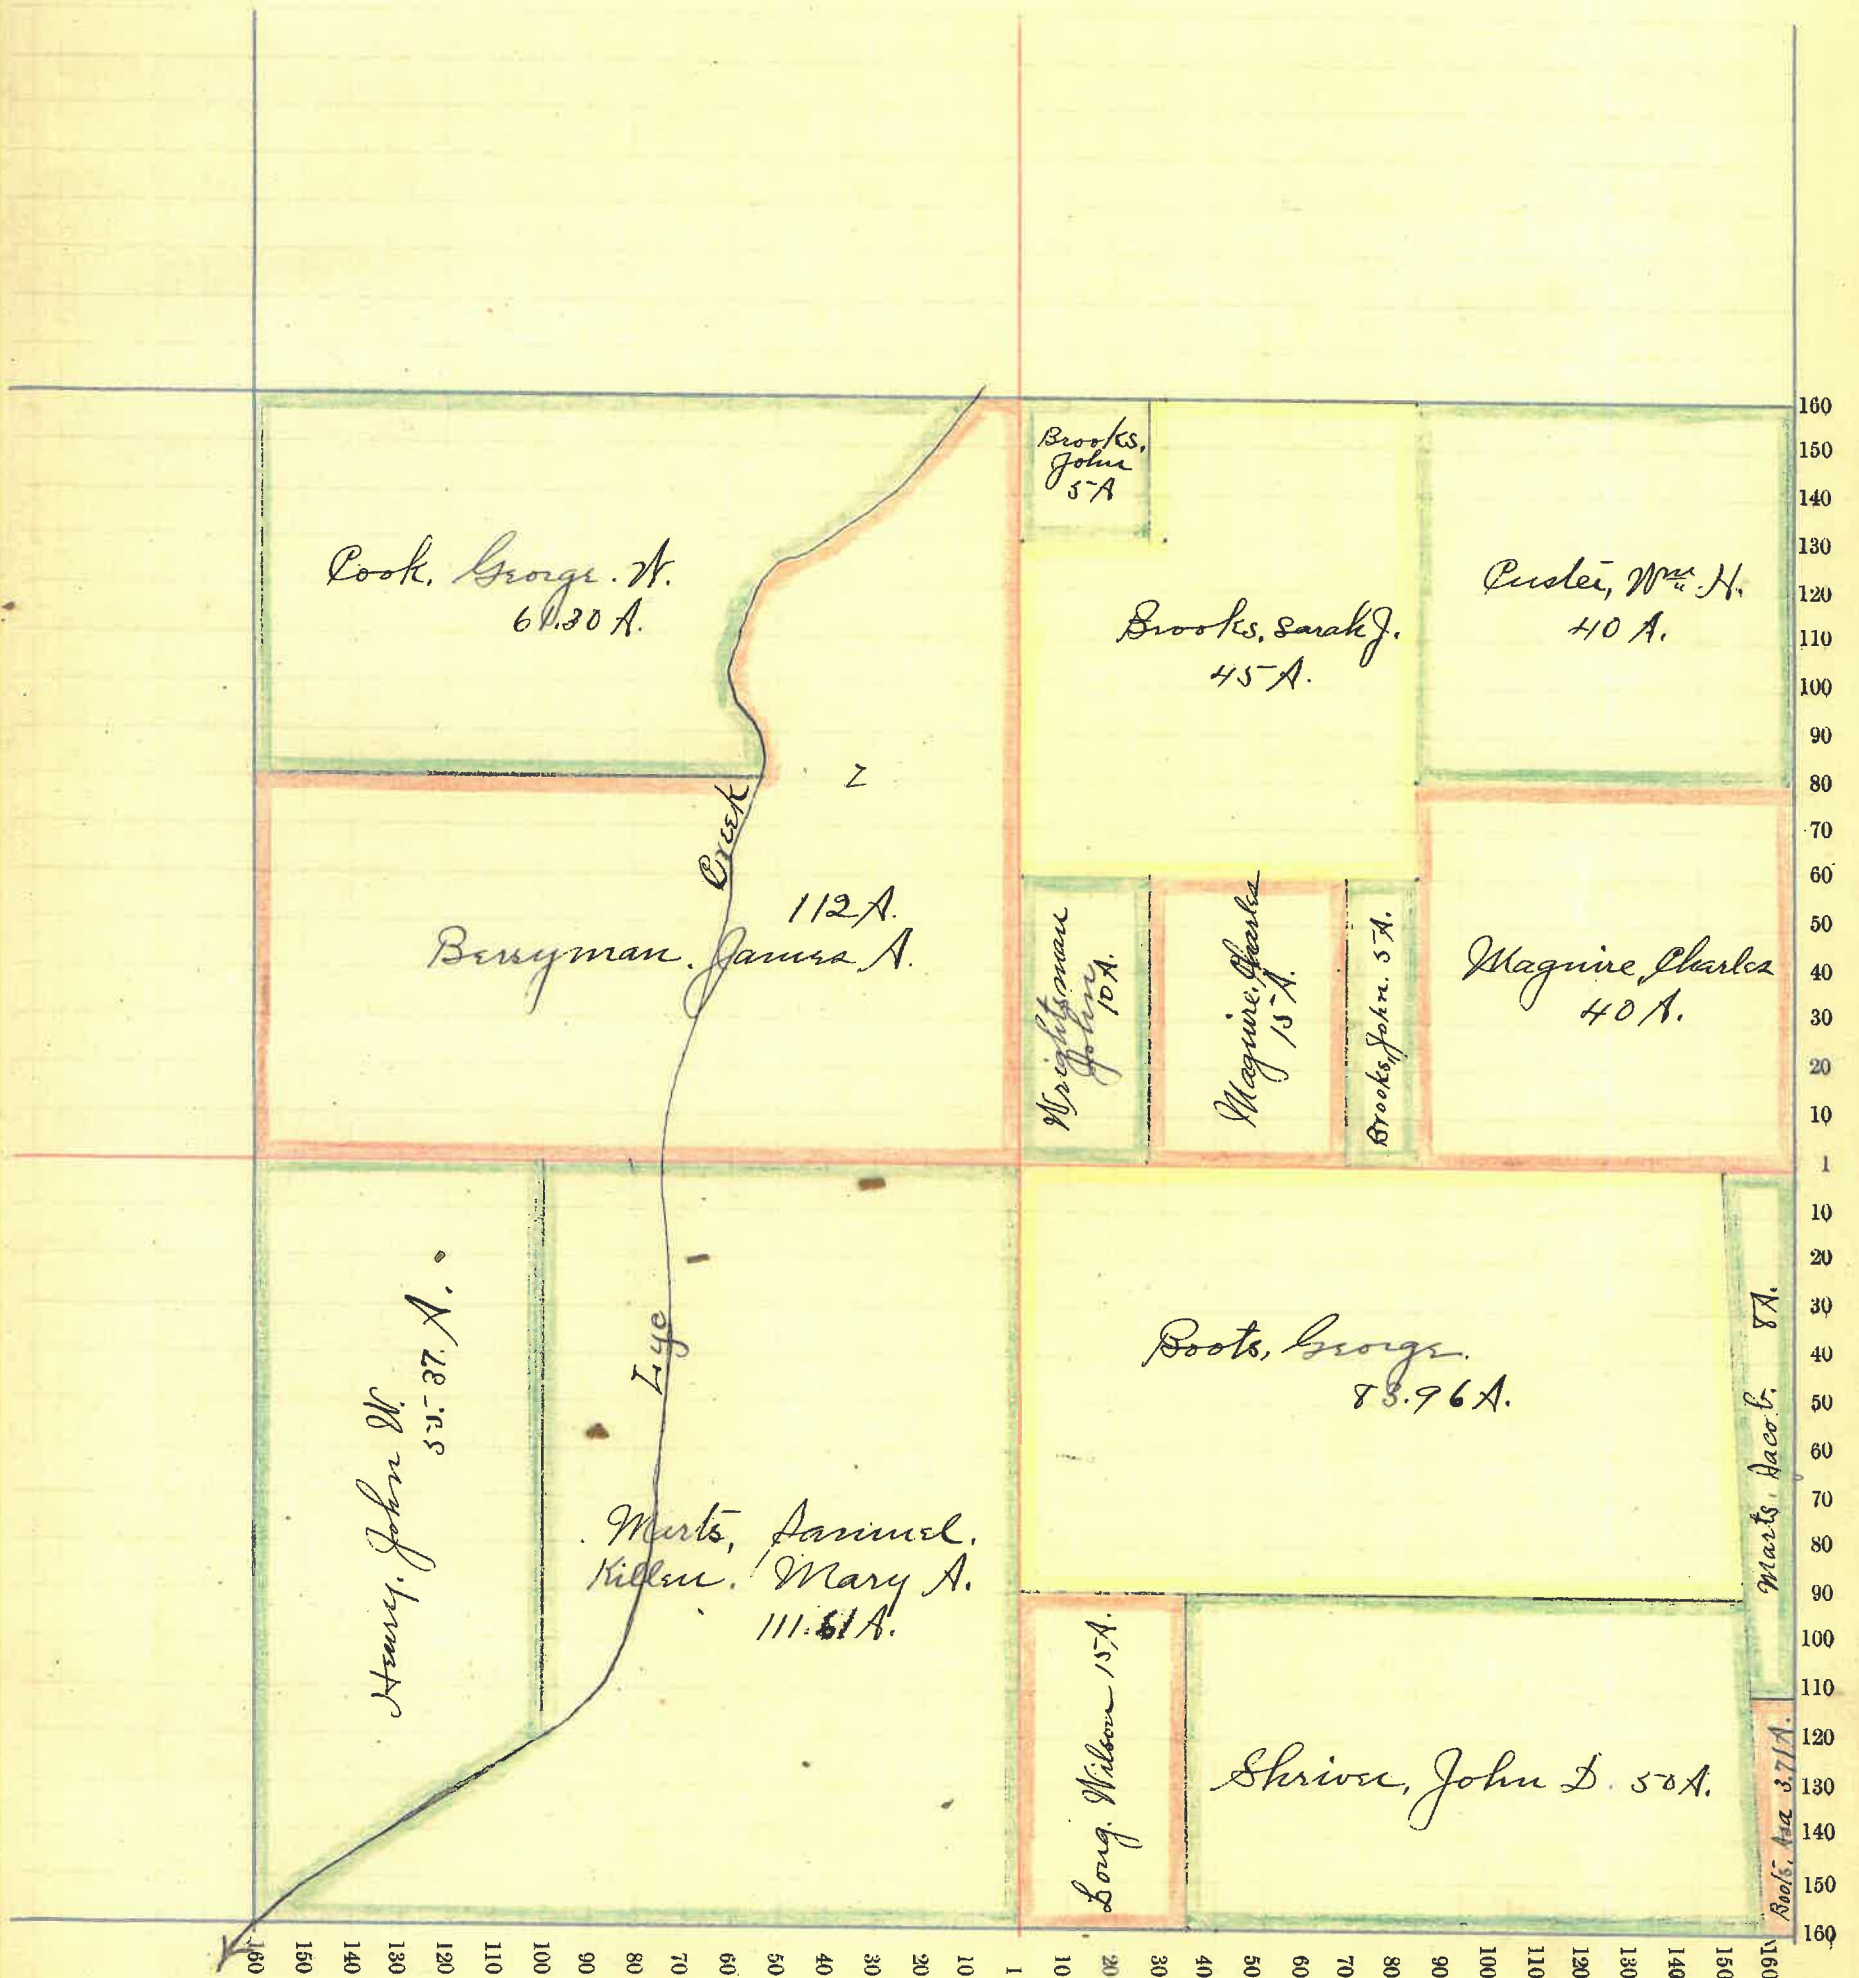 Brooks,
John
5 A
Cook, George. W.
61.30 A.
Brooks, Sarah J.
45 A.
Custer, Wm. H.
40 A.
Z
Creek
112 A.
Berryman, James A.
Wrightsman
John
10 A.
Maguire, Charles
15 A.
Brooks, John. 5 A.
Maguire, Charles
40 A.
Henry, John W.
55.37. A.
Lye
Merts, Samuel.
Killen. Mary A.
111.61 A.
Boots, George.
83.96 A.
Marts, Jacob. 8 A.
Long. Wilson 15 A.
Shriver, John D. 50 A.
Boots, Asa 3.71 A.
160
150
140
130
120
110
100
90
80
70
60
50
40
30
20
10
1
10
20
30
40
50
60
70
80
90
100
110
120
130
140
150
160
160 150 140 130 120 110 100 90 80 70 60 50 40 30 20 10 1 10 20 30 40 50 60 70 80 90 100 110 120 130 140 150 160